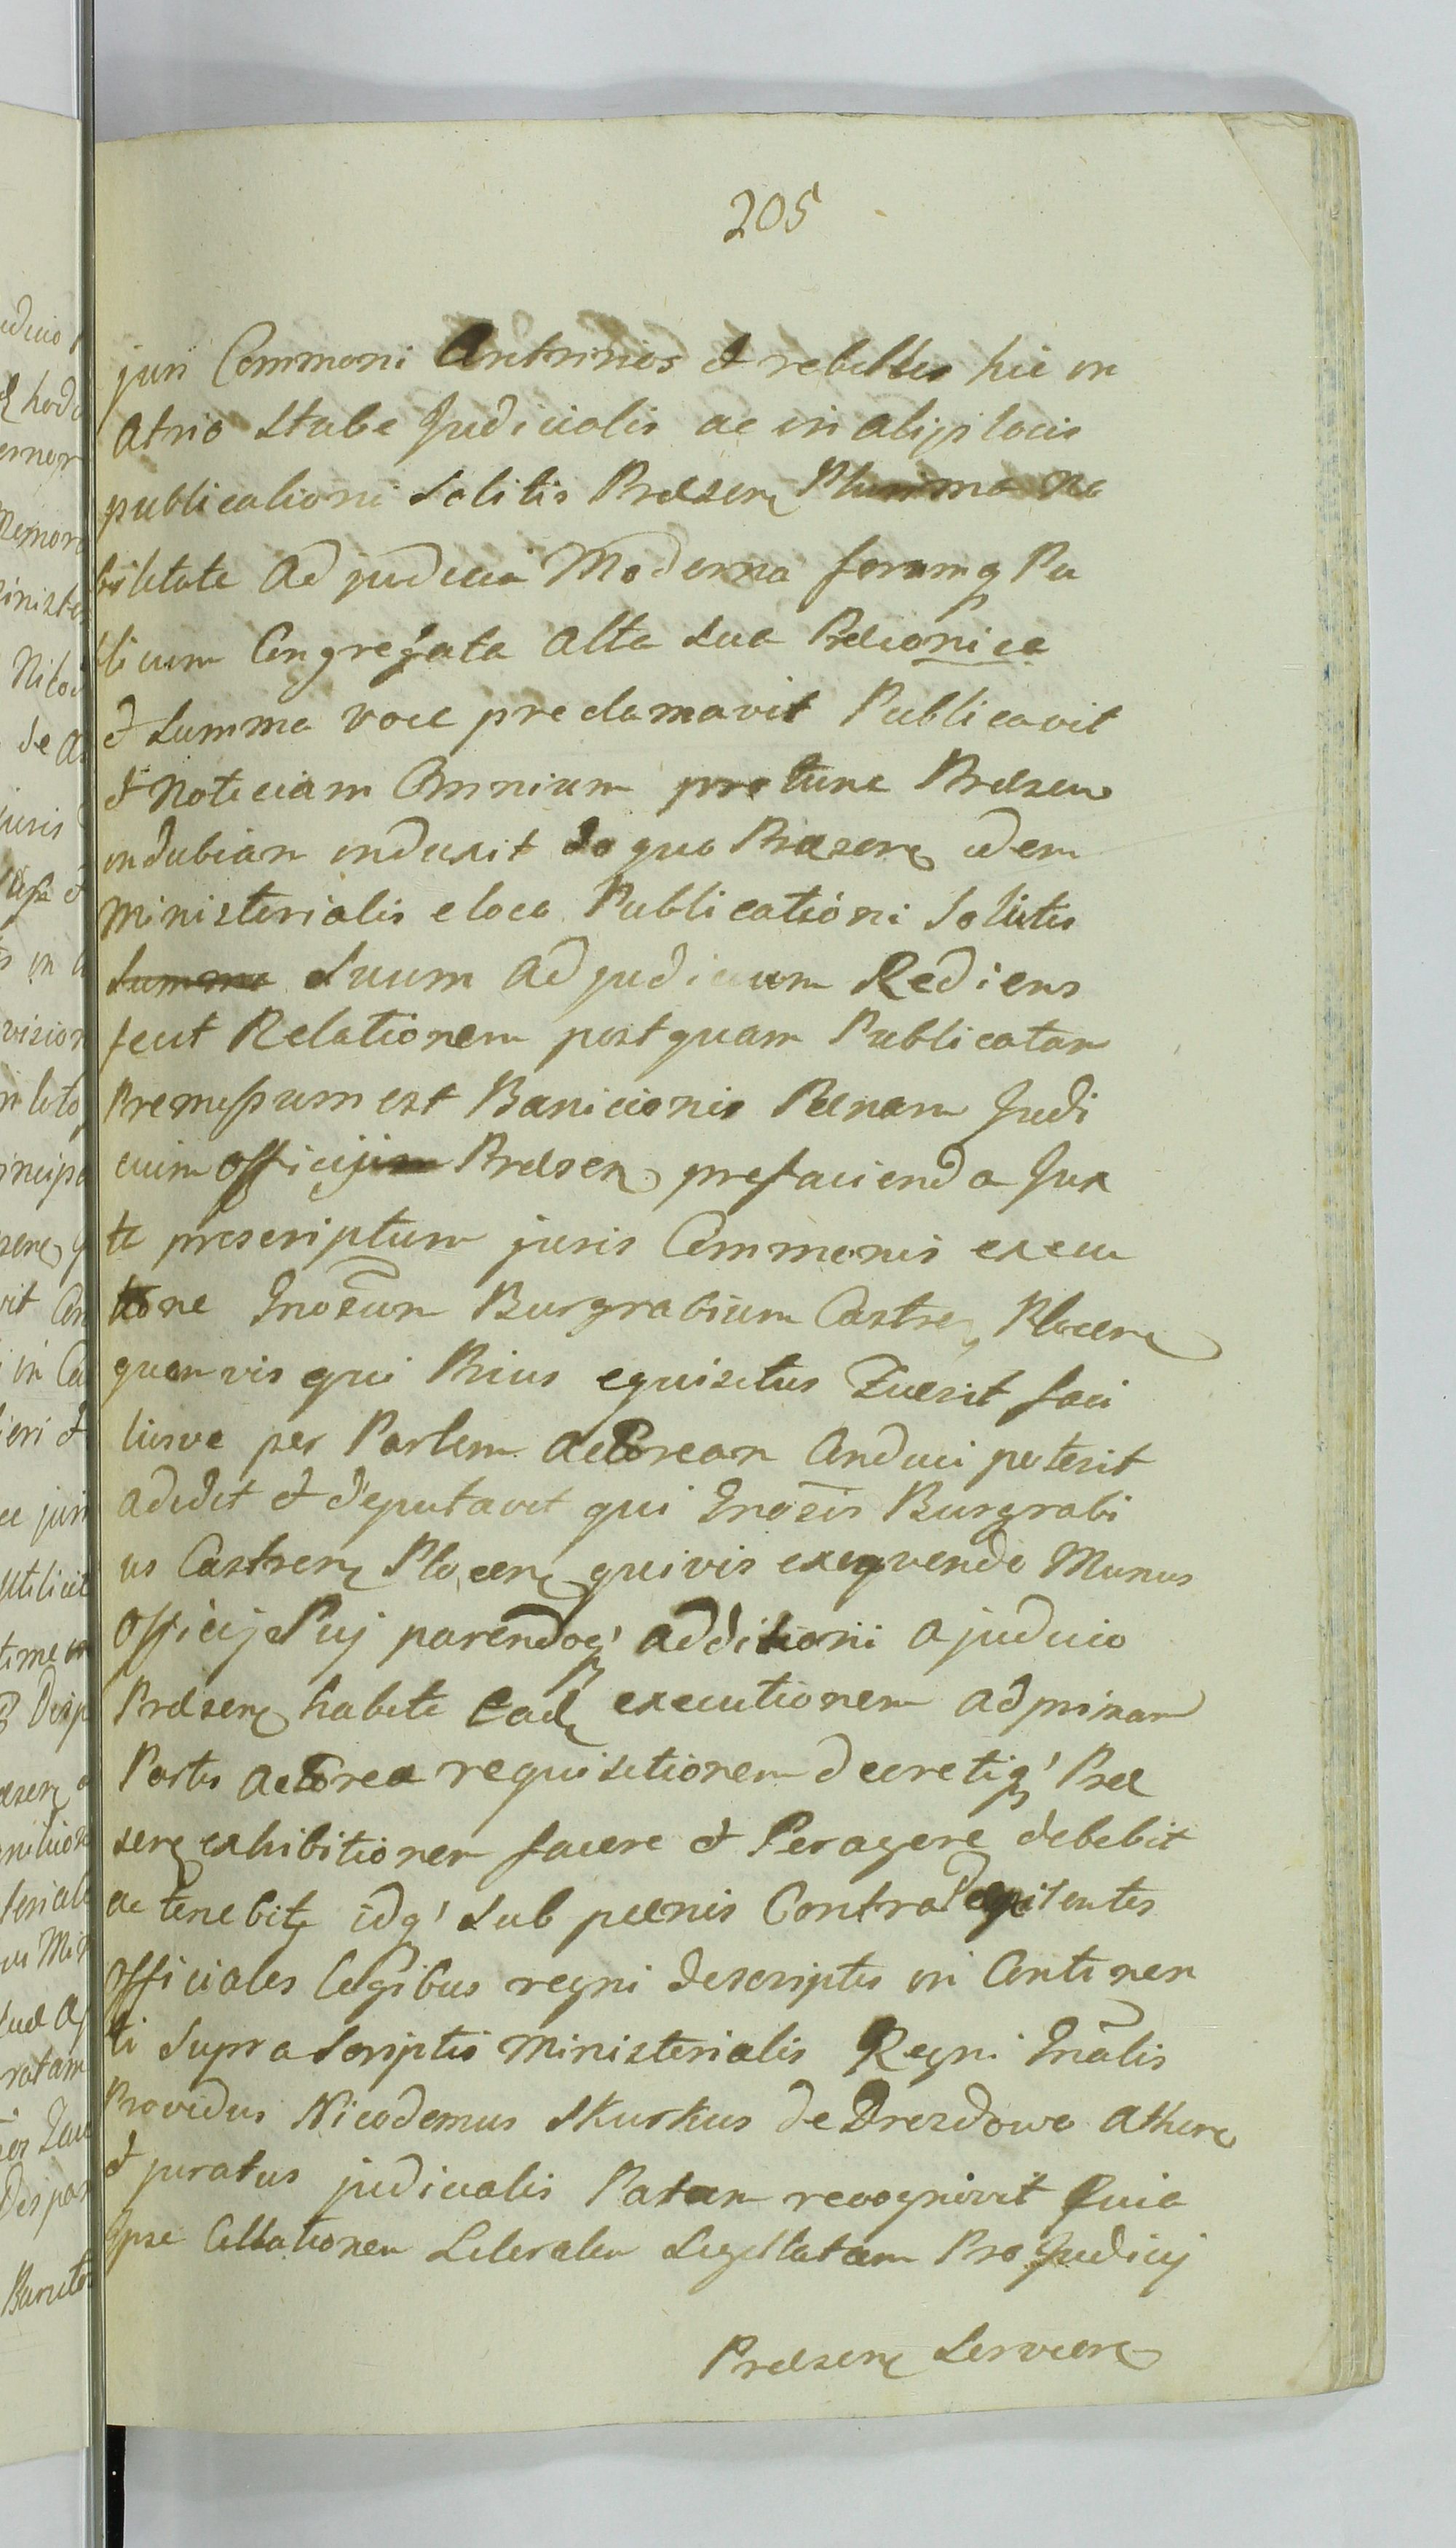 205
juri Commoni Contrarios et rebelles hic in
Atrio Stube Judicialis ac in alijs locis
publicationi Solitis Præsen Plurima No
bilitate Ad judicia Moderna forumq Pu
blicum Congregata Alta Sua Præconica
et Summa voce preclamavit Publicavit
et Noticiam Omnium protunc Præsen
indubiam induxit de quo Præsen idem
Ministerialis e loco Publicationi Solitis
Suum Ad judicium Rediens
fecit Relationem postquam Publicatam
Premissum est Banicionis Pœnam Judi
cium officij Præsen prefacienda Jux
ta prescriptum juris Commonis execu
tione Gnosum Burgrabium Castren Plocen
quemvis qui Prius equisitus Fuerit faci
liusve per Partem Actoream Conduci poterit
addidit et deputavit qui Gnosis Burgrabi
us Castren Plocen quivis exequendo Munus
Officij Sui parendoq' additioni a judicio
Præsen habite Ead executionem ad primam
Partis Actorea requisitionem decretiq' Præ
sen exhibitionem facere et Peragere debebit
ac tenebit idq' Sub pœnis Contra
Officiales legibus regni descriptis in Continen
ti Supra Scriptis Ministerialis Regni Gnalis
Providus Nicodemus Skurkus de Drozdowo Athen
et juratus judicialis Palam recognovit Quia
Ipse Citationem Literalem Pro Judicij
Præsen Servien